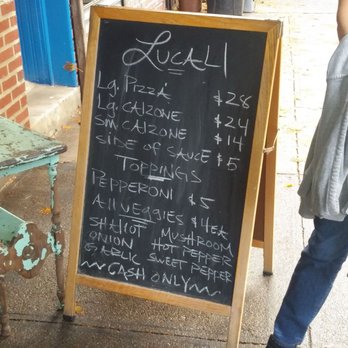 LUCALI
Lg. PIZZA $28
Lg. CALZONE $24
SM CALZONE $14
SIDE OF SAUCE $5
TOPPINGS
PEPPERONI $5
All VEGGIES $4EA
SHAllOT MUSHROOM
ONION HOT PEPPER
GARLIC SWEET PEPPER
CASH ONLY